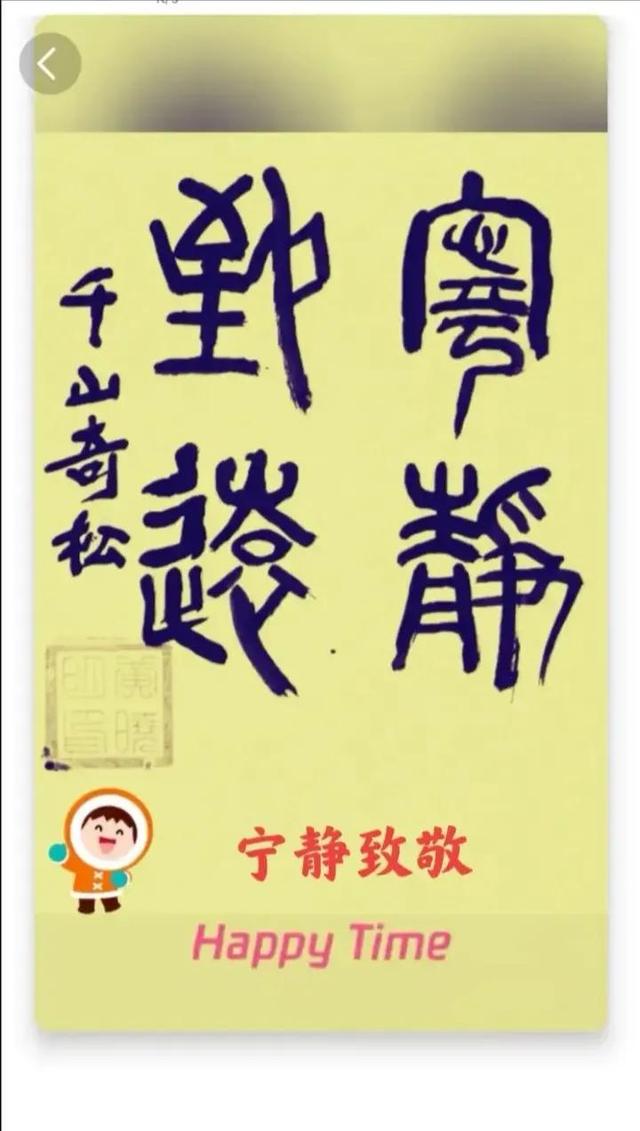 寧靜
致遠
千山奇松
宁静致敬
Happy Time